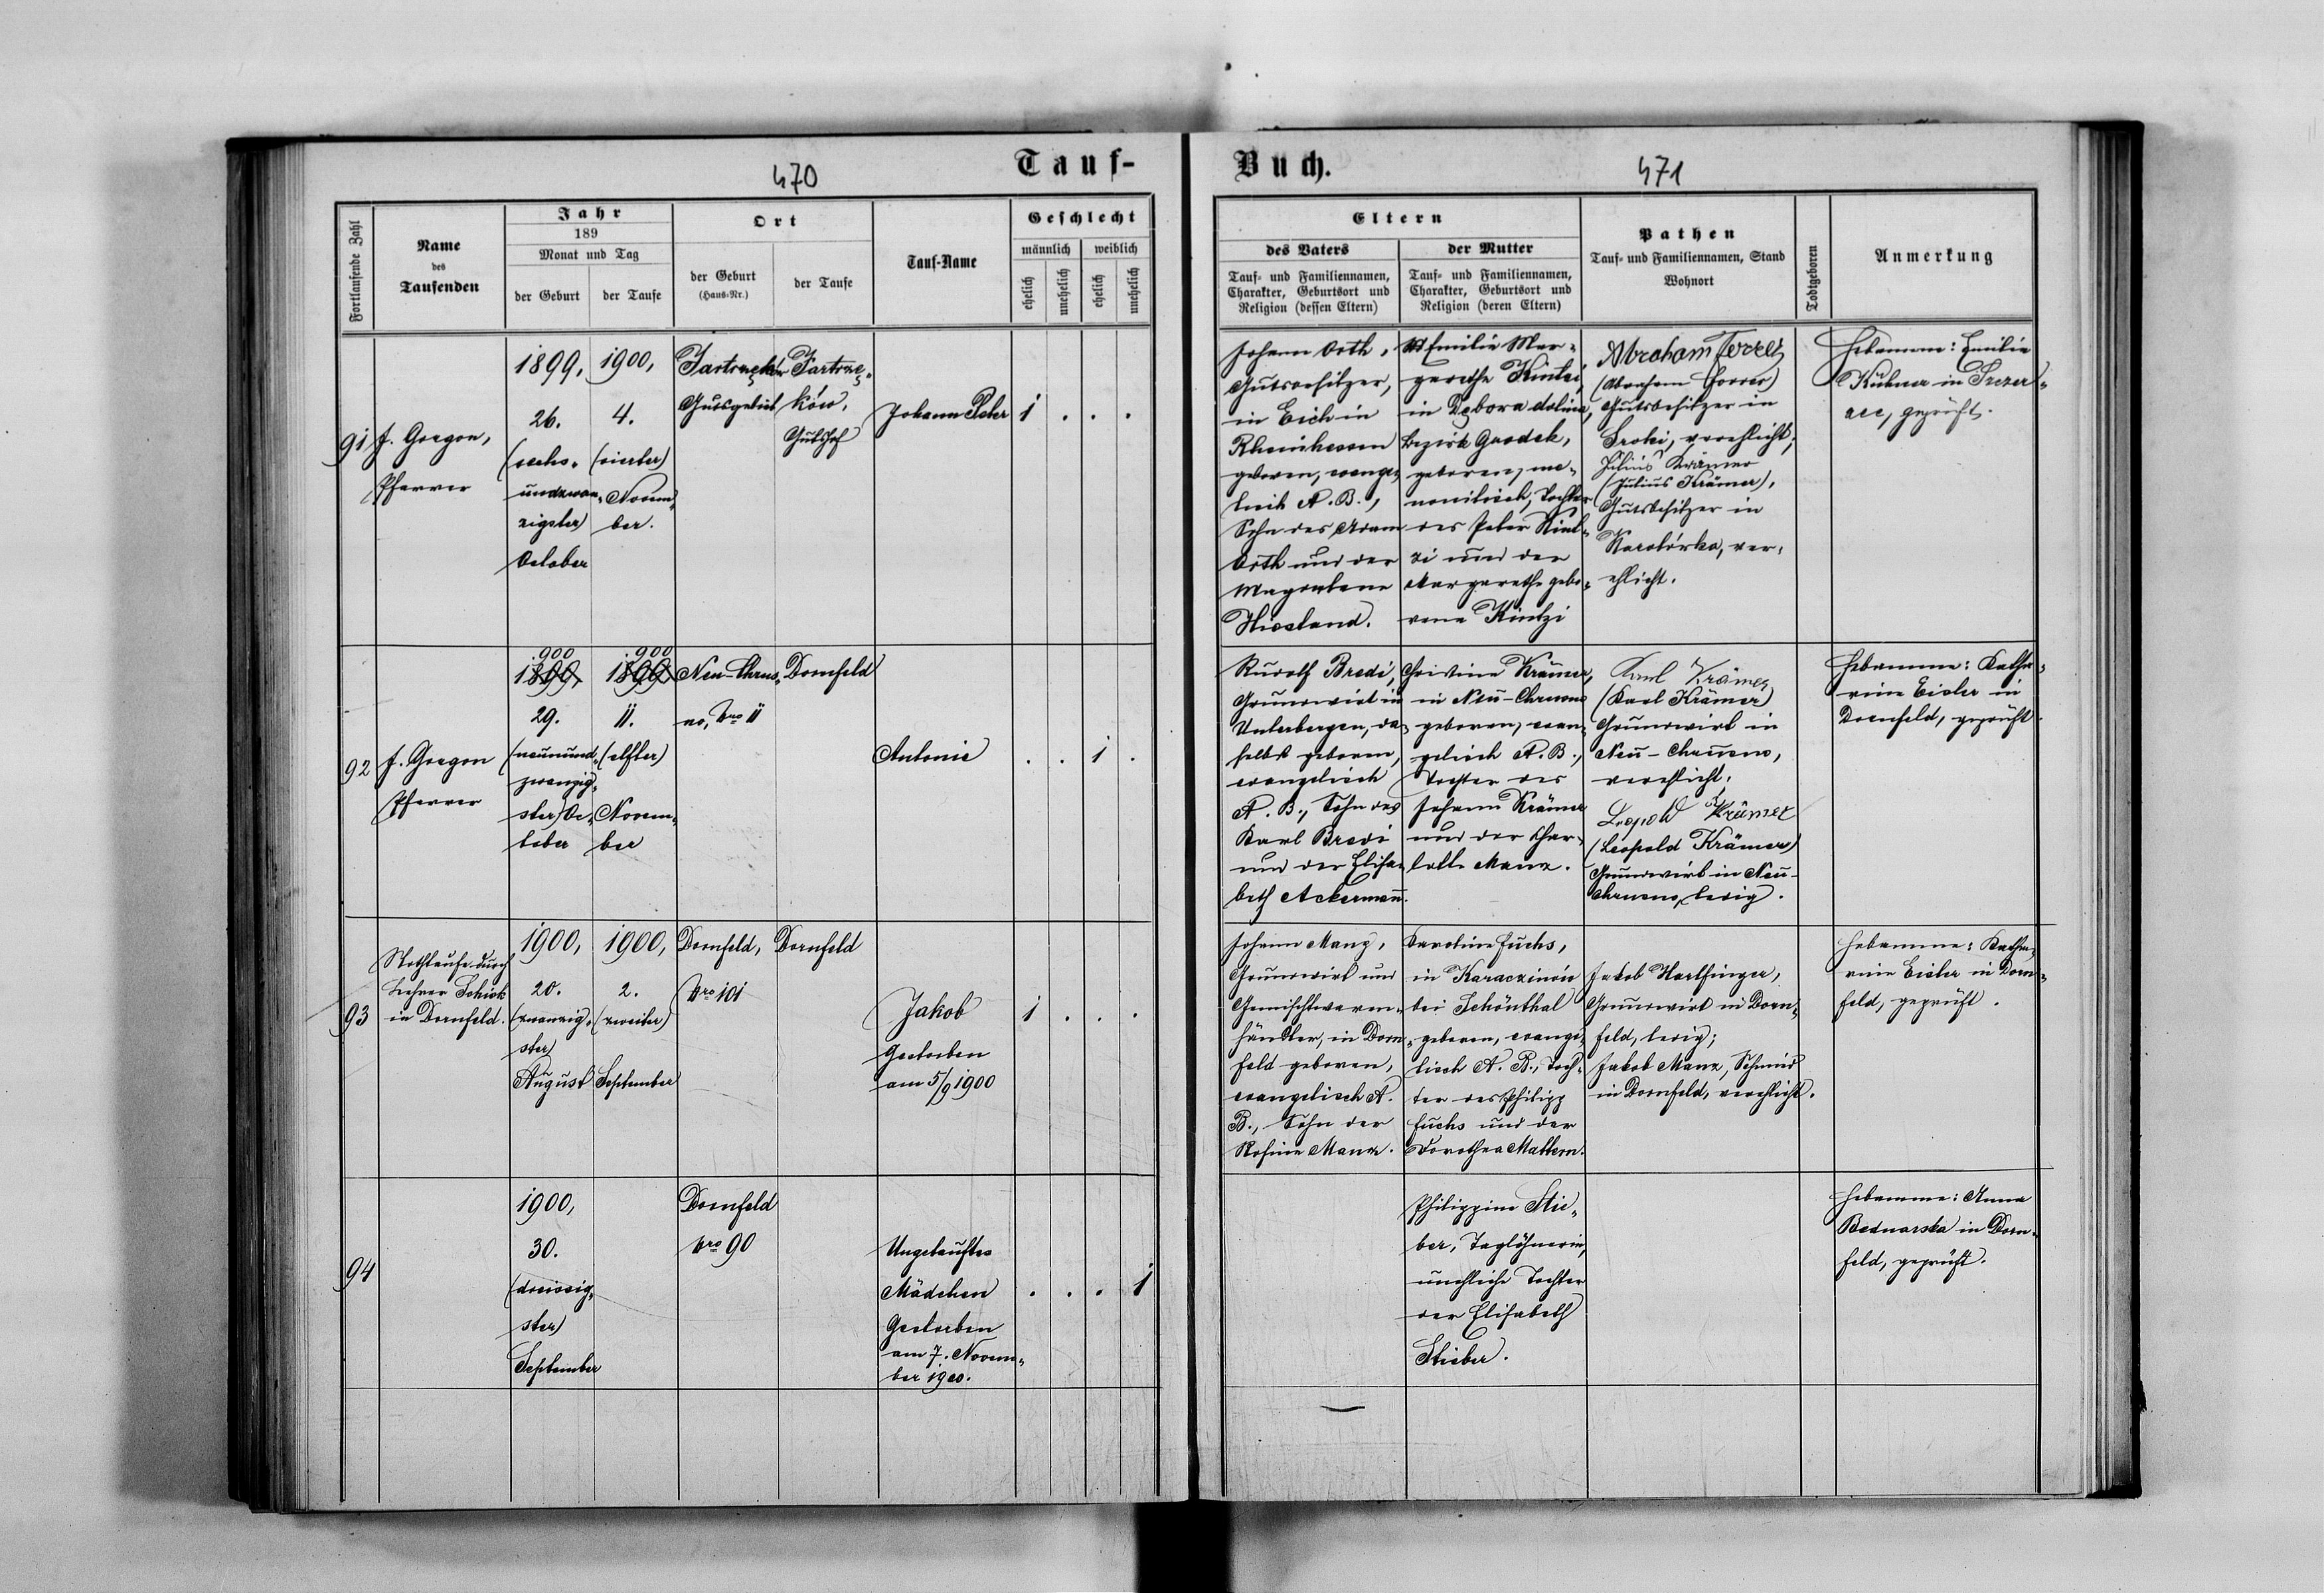 470
Tauf-
Fortlaufende Zahl
Name
des
Taufenden
Jahr
189
Monat und Tag
der Geburt
der Taufe
Ort
der Geburt
(Haus-Nr.)
der Taufe
Tauf-Name
Geschlecht
männlich
weiblich
ehelich
unehelich
ehelich
unehelich
91
J. Gorgon,
Pfarrer
1899,
26.
(sechs-
undzwan-
zigster)
October
1900,
4.
(vierter)
Novem-
ber.
Gutsgebiet
ków,
Gutshof
Johann Peter
1 . . .
92
J. Gorgon
Pfarrer
900
1899,
29.
(neunund-
zwanzig-
ster) Oc-
tober
900
1899
11.
(elfter)
Novem-
ber
Neu-Chrus-
no, Nro 11
Dornfeld
Antonie
. . 1 .
93
Nothtaufe durch
Lehrer Schick
in Dornfeld.
1900,
20.
(zwanzig-
ster)
August
1900,
2.
(zweiter)
September
Dornfeld,
Nro 101
Dornfeld
Jakob
Gestorben
am 5/9 1900
1 . . .
94
1900,
30.
(dreissig-
ster)
September
Dornfeld
Nro 90
Ungetauftes
Mädchen
Gestorben
am 7. Novem-
ber 1900.
. . . 1
Buch.
471
Eltern
des Vaters
Tauf- und Familiennamen,
Charakter, Geburtsort und
Religion (dessen Eltern)
der Mutter
Tauf- und Familiennamen,
Charakter, Geburtsort und
Religion (deren Eltern)
Pathen
Tauf- und Familiennamen, Stand
Wohnort
Todtgeboren
Anmerkung
Johann Orth,
Gutsbesitzer,
in Eich in
Rheinhessen
geboren, evange-
lisch A. B.,
Sohn des Adam
Orth und der
Magdalena
Hiestand.
Emilie Mar-
garethe Kintzi,
in Dąbrowa dolina,
Bezirk Grodek,
geboren, me-
nonitisch, Tochter
des Peter Kint-
zi und der
Margarethe gebo-
rene Kintzi
Abraham Forrer
(Abraham Forrer)
Gutsbesitzer in
Sroki, verehlicht;
Julius Krämer
(Julius Krämer),
Gutsbesitzer in
Karolówka, ver-
ehlicht.
Hebamme: Emilie
Kubner in
geprüft.
Rudolf Bredi,
Grundwirt in
Unterbergen, da-
selbst geboren,
evangelisch
A. B., Sohn des
Karl Bredi
und der Elisa-
beth Ackermann.
Christine Krämer,
in Neu-Chrusno
geboren, evan-
gelisch A. B.,
Tochter des
Johann Krämer
und der Char-
lotte Manz.
Karl Krämer
(Karl Krämer)
Grundwirt in
Neu-Chrusno,
verehlicht;
Leopold Krämer
(Leopold Krämer)
Grundwirt in Neu-
Chrusno, ledig.
Hebamme: Katha-
rine Eisler in
Dornfeld, geprüft.
Johann Manz,
Grundwirt und
Gemischtwaren-
händler, in Dorn-
feld geboren,
evangelisch A.
B., Sohn der
Rosine Manz.
Karoline Fuchs,
in Karaczinów
bei Schönthal
geboren, evange-
lisch A. B., Toch-
ter des Philipp
Fuchs und der
Dorothea Mattern.
Jakob Harlfinger,
Grundwirt in Dorn-
feld, ledig;
Jakob Manz, Schmied
in Dornfeld, verehlicht.
Hebamme: Katha-
rine Eisler in Dorn-
feld, geprüft.
Philippine Stie-
ber, Taglöhnerin,
uneheliche Tochter
der Elisabeth
Stieber.
Hebamme: Anna
Bednarska in Dorn-
feld, geprüft.